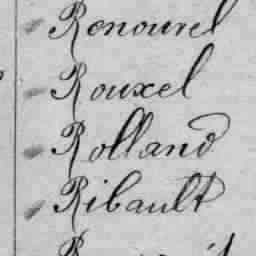 Renouvel
Rouxel
Rolland
Ribault